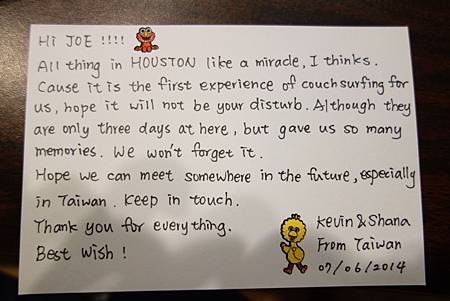 Hi JOE !!!!
All thing in HOUSTON like a miracle, I thinks.
Cause it is the first experience of couchsurfing for
us, hope it will not be your disturb. Although they
are only three days at here, but gave us so many
memories. We won't forget it.
Hope we can meet somewhere in the future, especially
in Taiwan. Keep in touch.
Thank you for everything.
Best wish !
Kevin & Shana
From Taiwan
07/06/2014